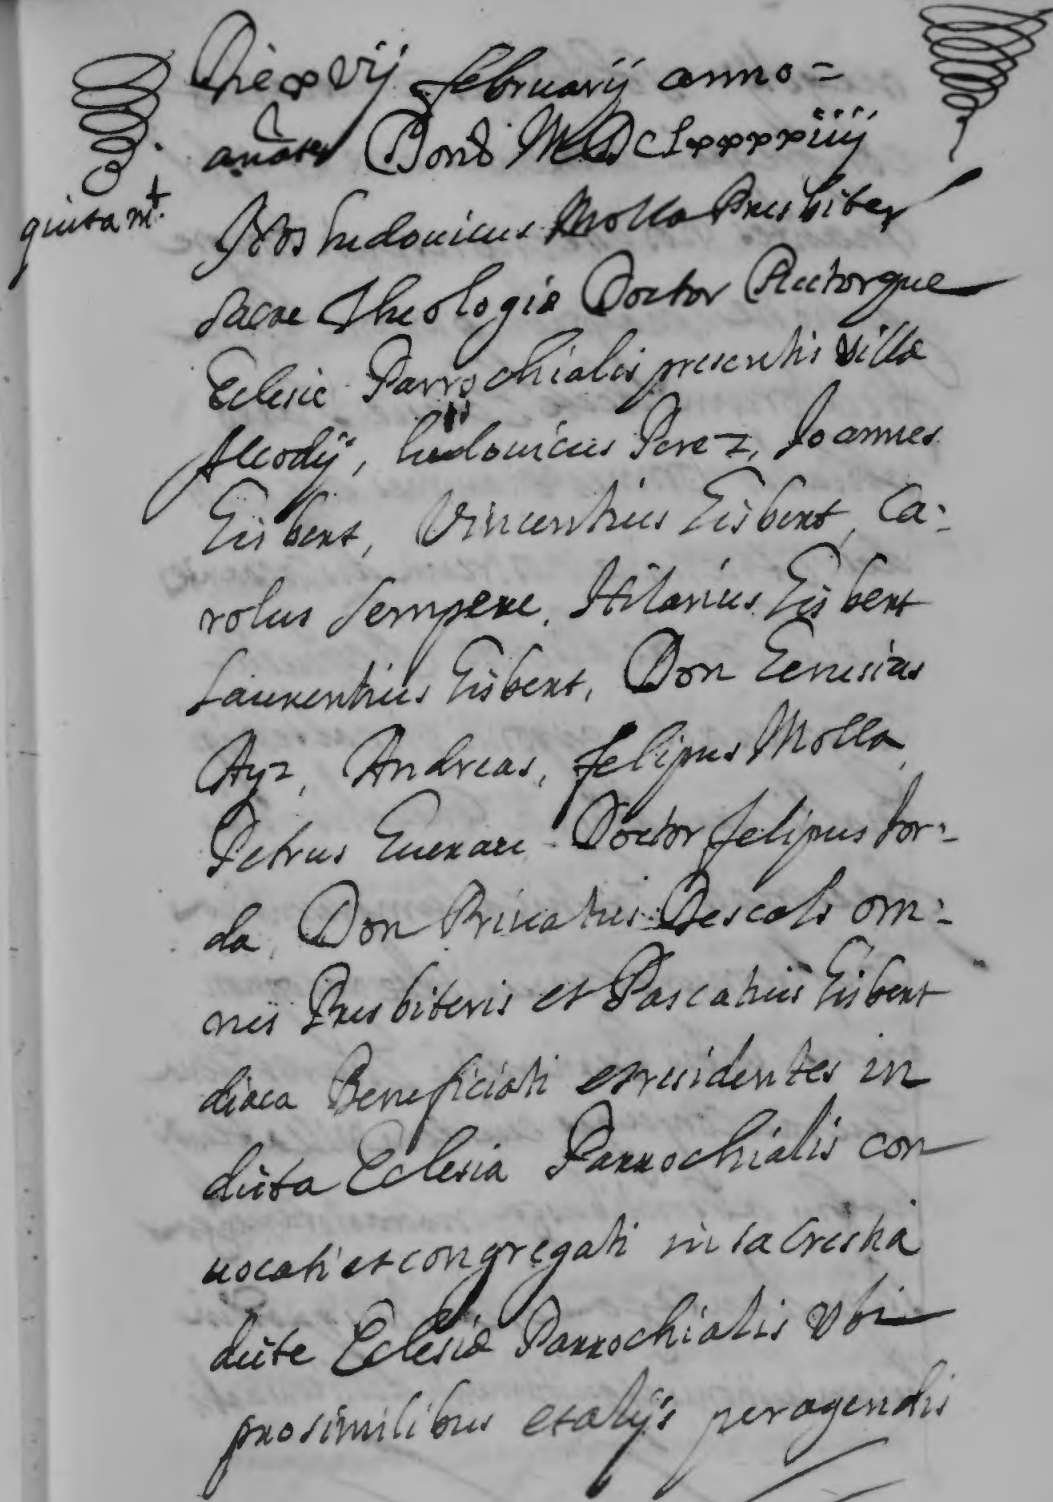 Die xvij februarij anno =
Domi MDCLxxxxiiij
giutamt.
Nos Ludouicus Molla Presbiter
sacre Theologie Doctor Rectorque
Eclesie Parrochialis presentis villa
Alcodij, Ludouicus Perez, Joannes
Gisbert, Vincentius Gisbert, Ca=
rolus Sempere, Hilarius Gisbert
Laurentius Gisbert, Don Genesius
Ayz, Andreas, felipus Molla,
Petrus Guerau Doctor felipus Jor=
da, Don Privatus Descals om=
nes Presbiteris et Pascatius Gisbert
diaca Beneficiati et residentes in
dicta Eclesia Parrochialis con
uocati et congregati in sacrestia
dicte Eclesie Parrochialis Vbi
pro similibus et alijs peragendis